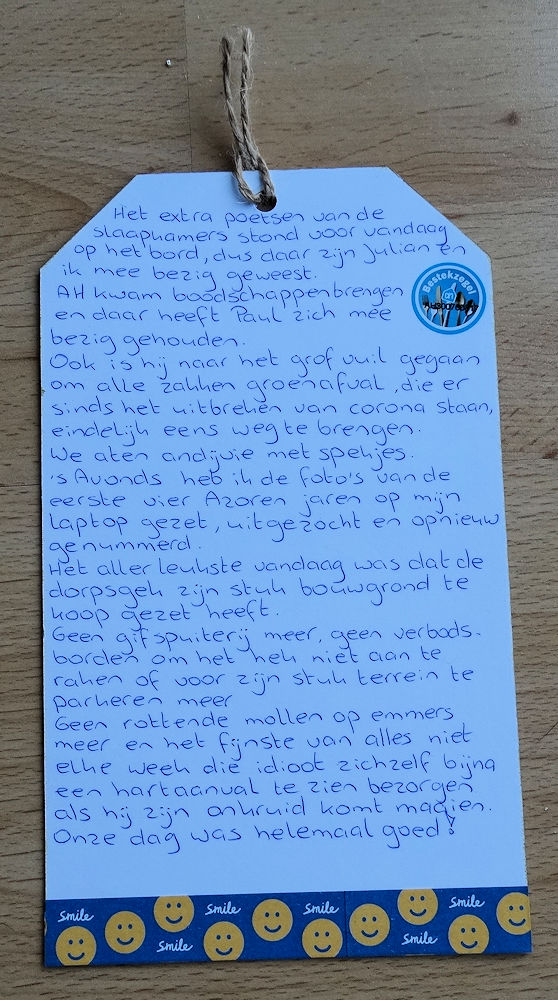 Het extra poetsen van de
slaapkamers stond voor vandaag
op het bord, dus daar zijn Julian en
ik mee bezig geweest.
AH kwam boodschappen brengen
en daar heeft Paul zich mee
bezig gehouden.
Bestekzegel
Ook is hij naar het grof vuil gegaan
om alle zakken groenafval, die er
sinds het uitbreken van corona staan,
eindelijk eens weg te brengen.
We aten andijvie met spekjes.
's Avonds heb ik de foto's van de
eerste vier Azoren jaren op mijn
laptop gezet, uitgezocht en opnieuw
genummerd.
Het aller leukste vandaag was dat de
dorpsgek zijn stuk bouwgrond te
koop gezet heeft.
Geen gifspuiterij meer, geen verbods-
borden om het hek niet aan te
raken of voor zijn stuk terrein te
parkeren meer
Geen rottende mollen op emmers
meer en het fijnste van alles niet
elke week die idioot zichzelf bijna
een hartaanval te zien bezorgen
als hij zijn onkruid komt maaien.
Onze dag was helemaal goed!
smile smile smile smile
smile smile